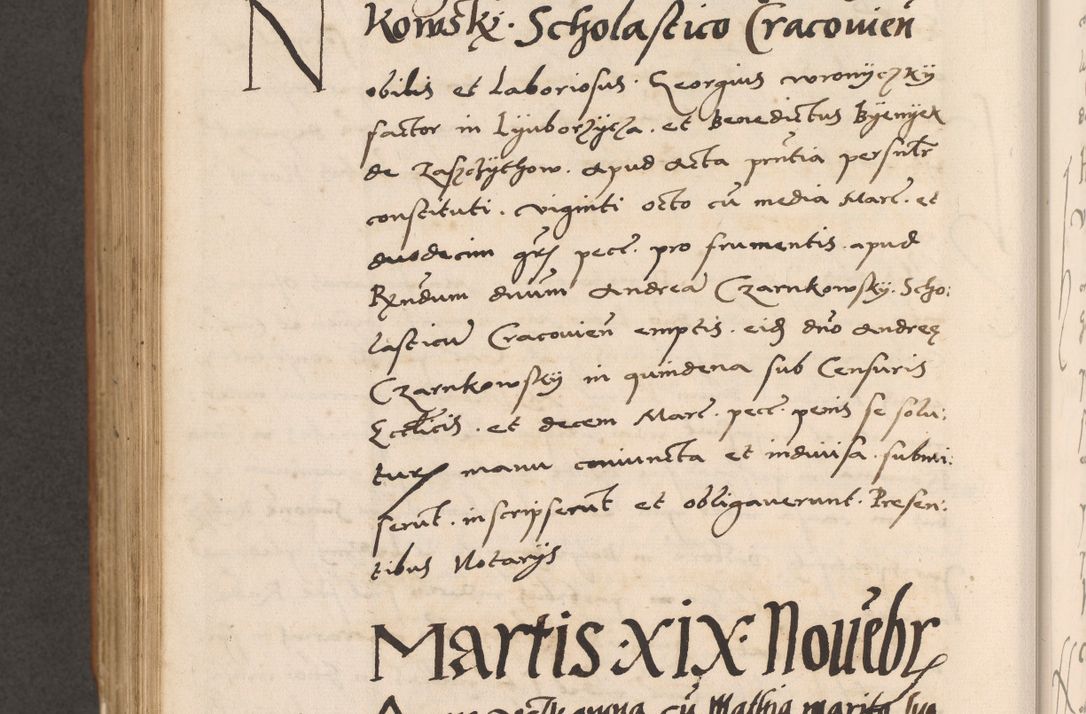 Kowskÿ. Scholastico Cracouień
Nobilis et Laboriosus. Georgius woronÿczkÿ
factor in Lÿuborzÿcza. et Benedictus Bÿenÿek
de . apud Acta pn̄tia persn̄lr
constituti. viginti octo cū media Marc̄. et
duodecim gr̄ pecc̄. pro frumentis. apud
Rn̄dum dn̄um Andreā Czarnkowskÿ. Scho:
lasticū Cracouień emptis. eid dn̄o Andreę
Czarnkowskÿ in quindena sub Censuris
Eccl̄icis. et decem Marc̄. pecc̄. penis se solu:
tur manu coniuncta et indiuisa. submi:
serūt. inscripserūt et obligauerunt. Presen:
tibus Notarijs
Martis XIX Nouēbr
cū Mathia marito suo